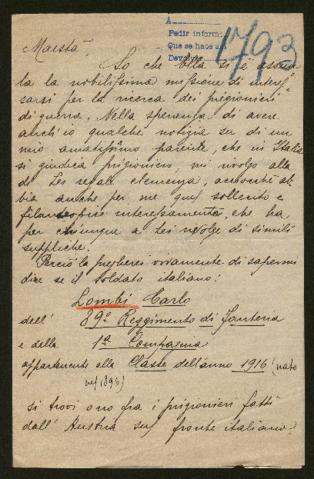 A
Pedir inform
Que se hace
Devolver
1793
Maestà
So che Ella si è assun
ta la nobilissima missione di interes
sarsi per la ricerca dei prigionieri
di guerra. Nella speranza di avere
anch'io qualche notizia su di un
mio amatissimo parente, che in Italia
si giudica prigioniero, mi rivolgo alla
di Lei regale clemenza, acciocchè ab
bia anche per me quel sollecito e
filantropico interessamento, che ha
per chiunque a Lei rivolge di simili
suppliche.
Perciò la pregherei vivamente di sapermi
dire se il soldato italiano:
Lombi Carlo
dell' 89º Reggimento di Fanteria
e della 1ª Compagnia
appartenente alla Classe dell'anno 1916 (nato
nel 1896)
si trovi ora fra i prigionieri fatti
dall'Austria sul fronte italiano?